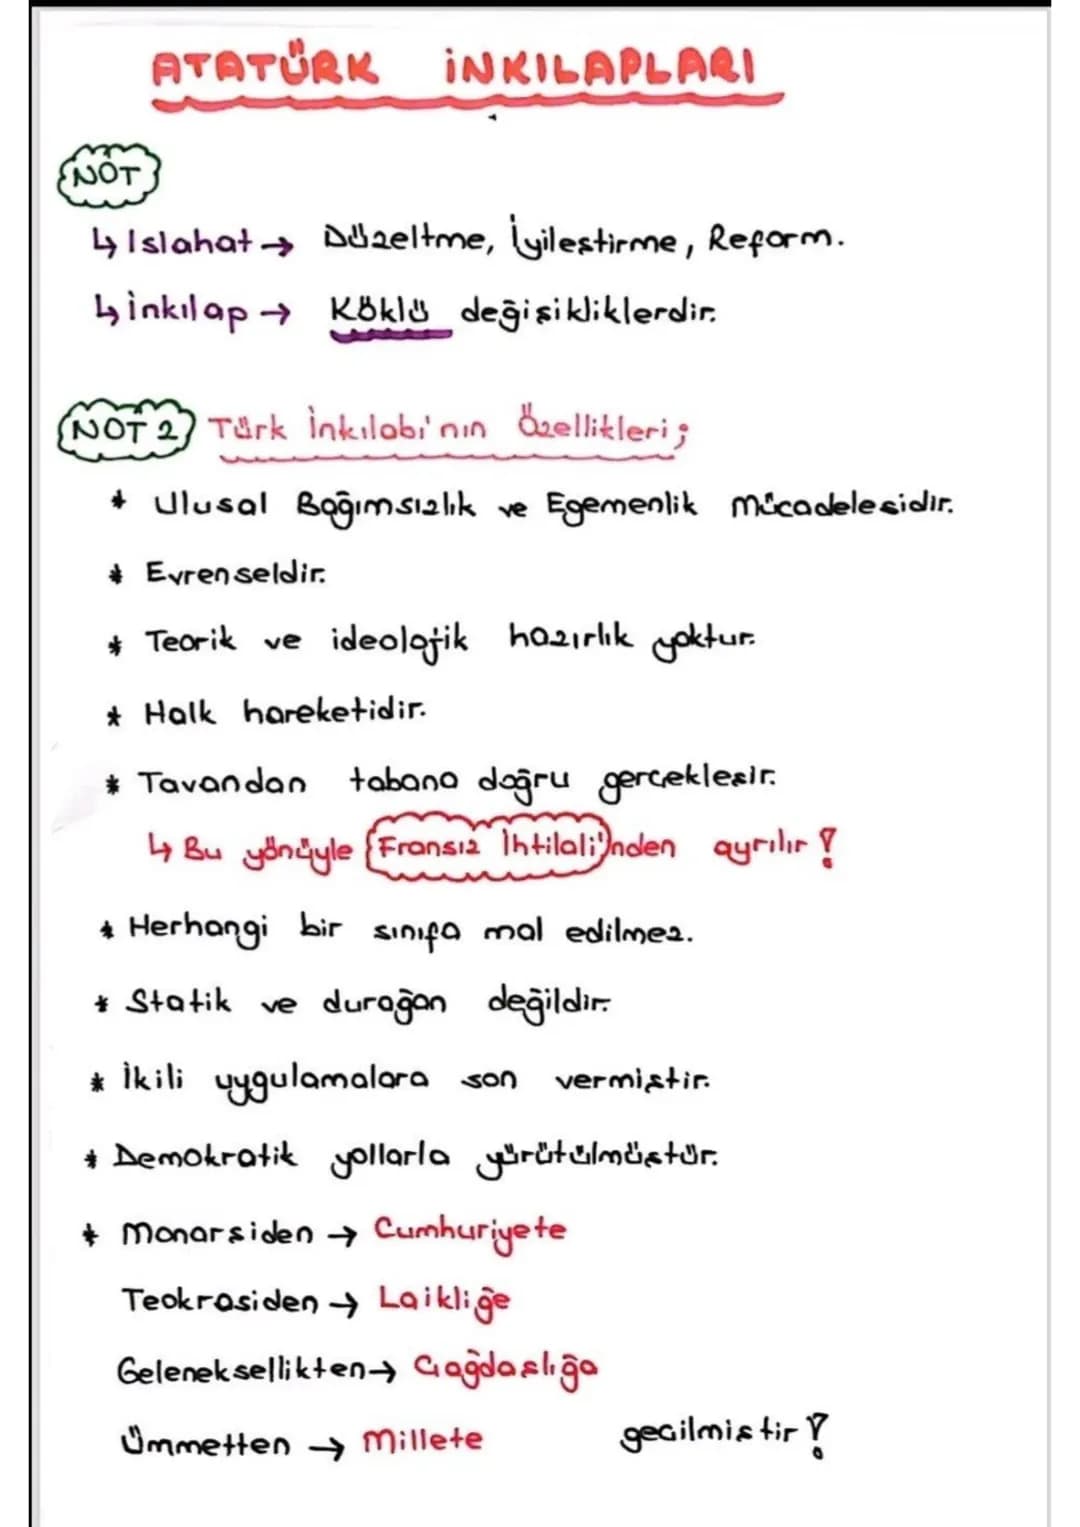 ATATÜRK İNKILAPLARI
NOT
↳ Islahat → Düzeltme, İyileştirme, Reform.
↳ inkılap → Köklü değişikliklerdir.
NOT 2 Türk İnkılabı'nın Özellikleri;
* Ulusal Bağımsızlık ve Egemenlik mücadelesidir.
* Evrenseldir.
* Teorik ve ideolojik hazırlık yoktur.
* Halk hareketidir.
* Tavandan tabana doğru gerçekleşir.
↳ Bu yönüyle Fransız İhtilali'nden ayrılır!
* Herhangi bir sınıfa mal edilmez.
* Statik ve durağan değildir.
* İkili uygulamalara son vermiştir.
* Demokratik yollarla yürütülmüştür.
* Monarşiden → Cumhuriyete
Teokrasiden → Laikliğe
Geleneksellikten → Çağdaşlığa
Ümmetten → Millete geçilmiştir!